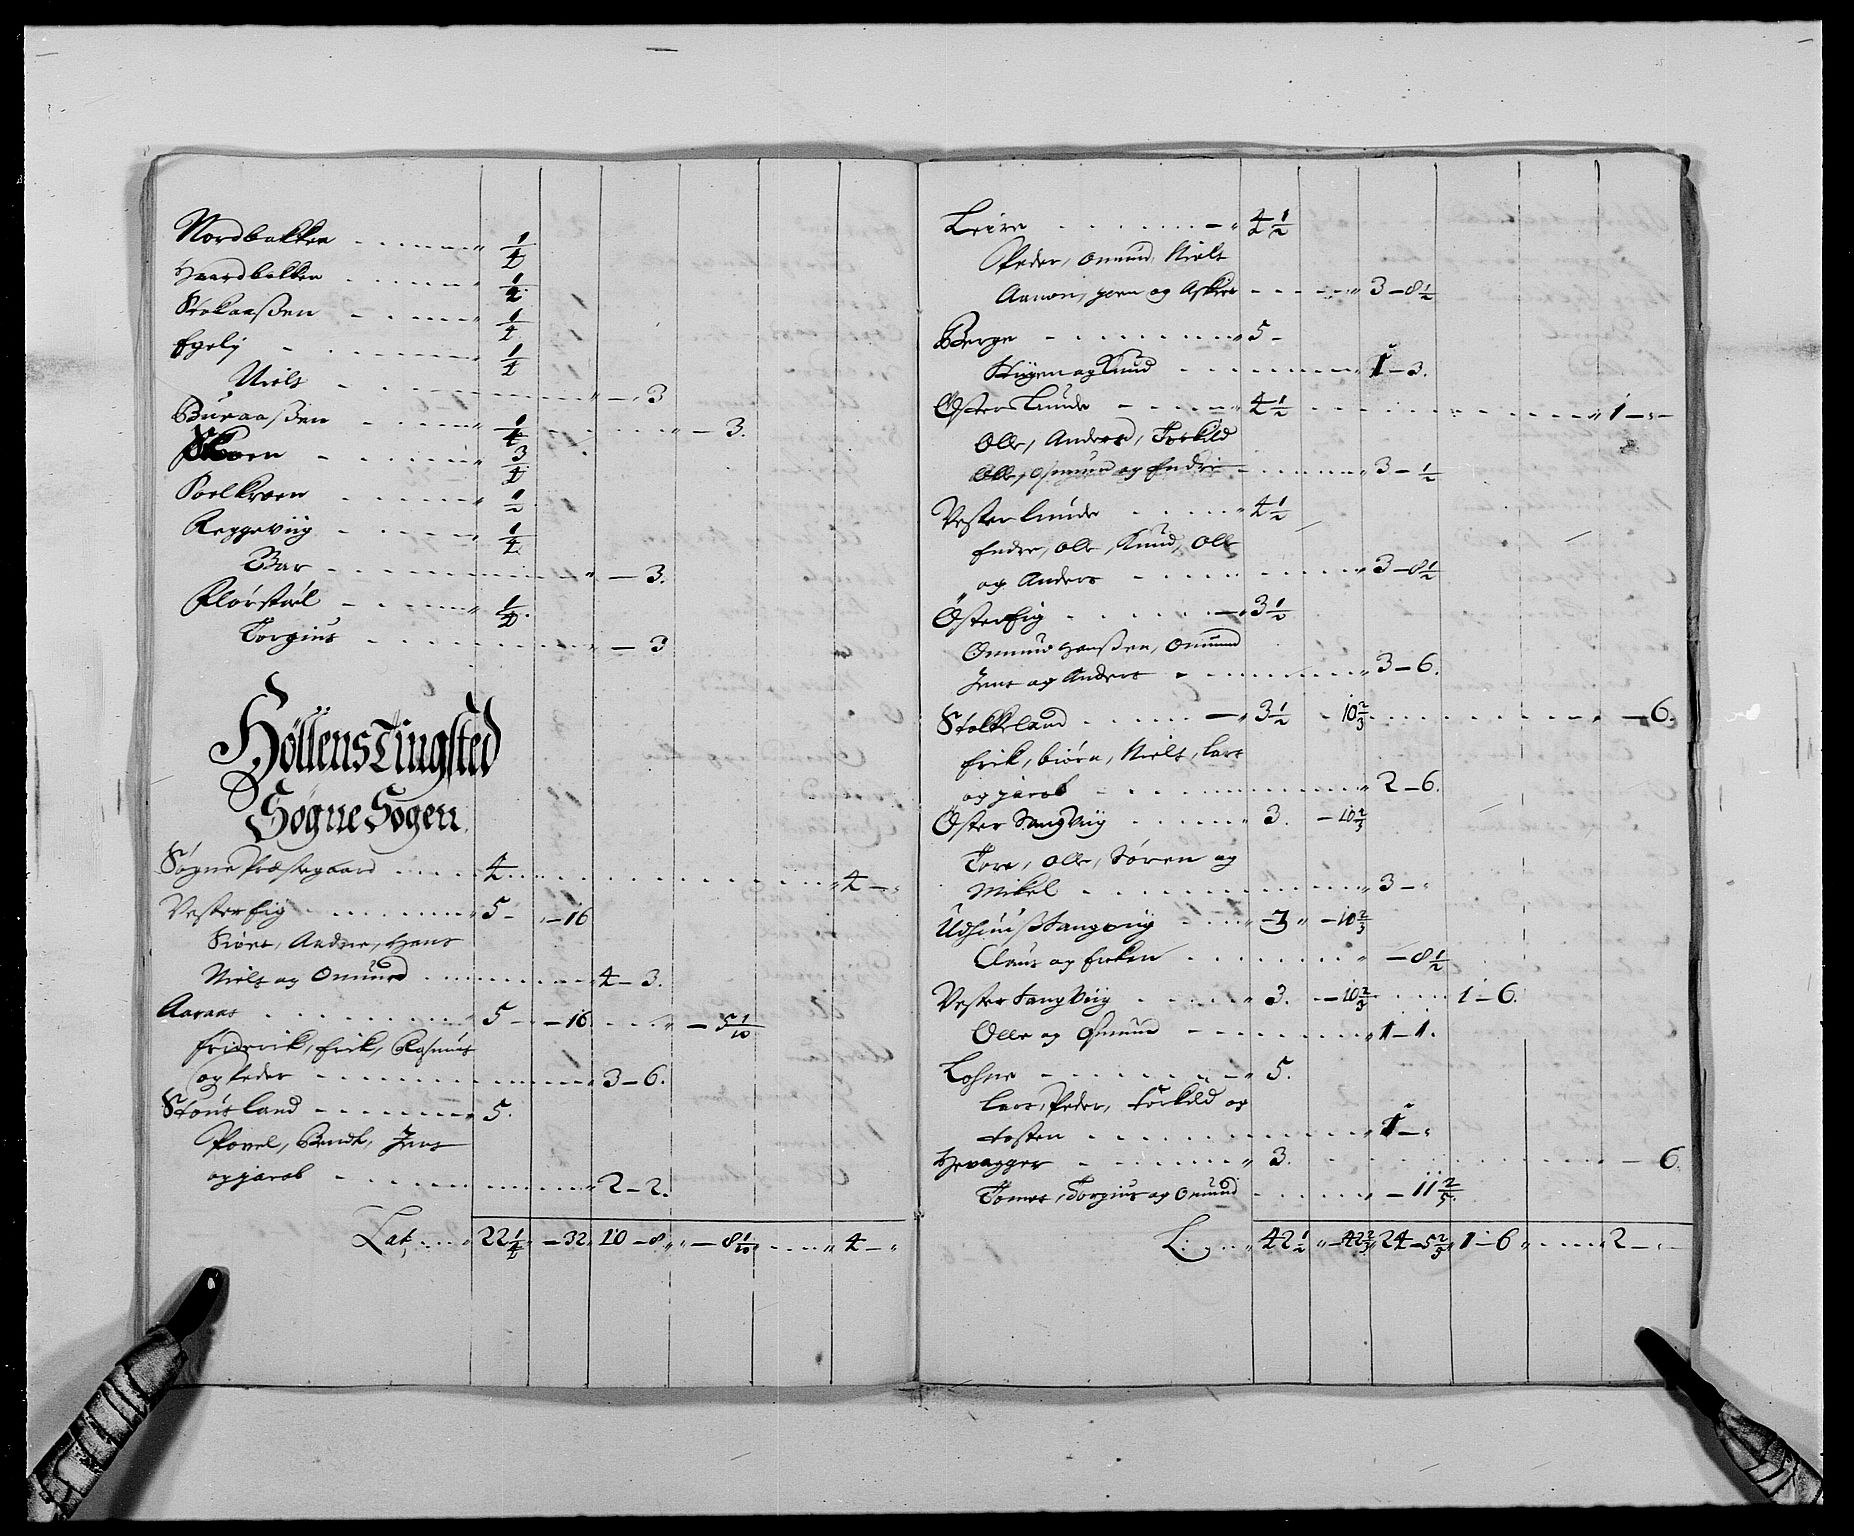 Nordbakken 1/4
Haardbakken 1/4
Stokaaßen 1/4
Egelij 1/4
Niels — 3
Buraaßen 1/4 — 3.
Skoren 3/4
Koelkroen 1/2
Reppeviig 1/4
Bar — 3.
Flørstøel 1/4
Torgius — 3
Höllens Tingsted
Søgne Sogen
Søgne Præstegaard 4 4 —
Vester Eig 5 — 16
Niels og Omund 4 — 3.
Aaraas 5 — 16 — 5 1/10
Friderik, Erik, Rasmus
og Peder 3 — 6.
Stousland 5.
Povel, Bendt, Jens
og Jacob 2 — 2.
Lat. 22 1/4 — 32 10 — 8 — 8 1/10 4 —
Leire 4 1/2
Peder, Omund, Niels
Aanon, og Asker 3 — 8 1/2
Berge 5 —
og Knud 1 — 3.
Øster Lunde 4 1/2 1 —
Olle, Anders, Torkild
Olle, Osmund og Endre 3 — 1/2
Vester Lunde 4 1/2
Endre, Olle, Knud, Olle
og Anders 3 — 8 1/2
Øster Eig 3 1/2
Omund Hanßen, Omund
Jens og Anders 3 — 6.
Stokkeland 3 1/2 10 2/3 — 6.
Erik, Biørn, Niels, Lars
og Jacob 2 — 6.
Øster Tangviig 3. — 10 2/3
Tore, Olle, Søren og
Mikel 3 —
3 — 10 2/3
Claus og — 8 1/2
Vester Tangviig 3. — 10 2/3 1 — 6.
Olle og Osmund 1 — 1.
Lohne 5.
Lars, Peder, Torkild og
Tosten 1 —
Hevagger 3. — 6.
Tomes, Torgius og Omund — 11 2/5
L. 42 1/2 — 42 2/3 24 — 5 2/3 1 — 6 2 —